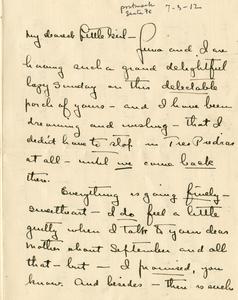 postmark 7-3-12
Santa Fe
My dearest Little Girl -
Gema and I are
having such a grand delightful
lazy Sunday on this delectable
porch of yours - and I have been
dreaming and wishing - that I
didn't have to stop in Tres Piedras
at all - until we came back
then.
Everything is going finely -
sweetheart - I do feel a little
guilty when I talk to your dear
mother about September and all
that - but - I promised, you
know. And besides - there is such